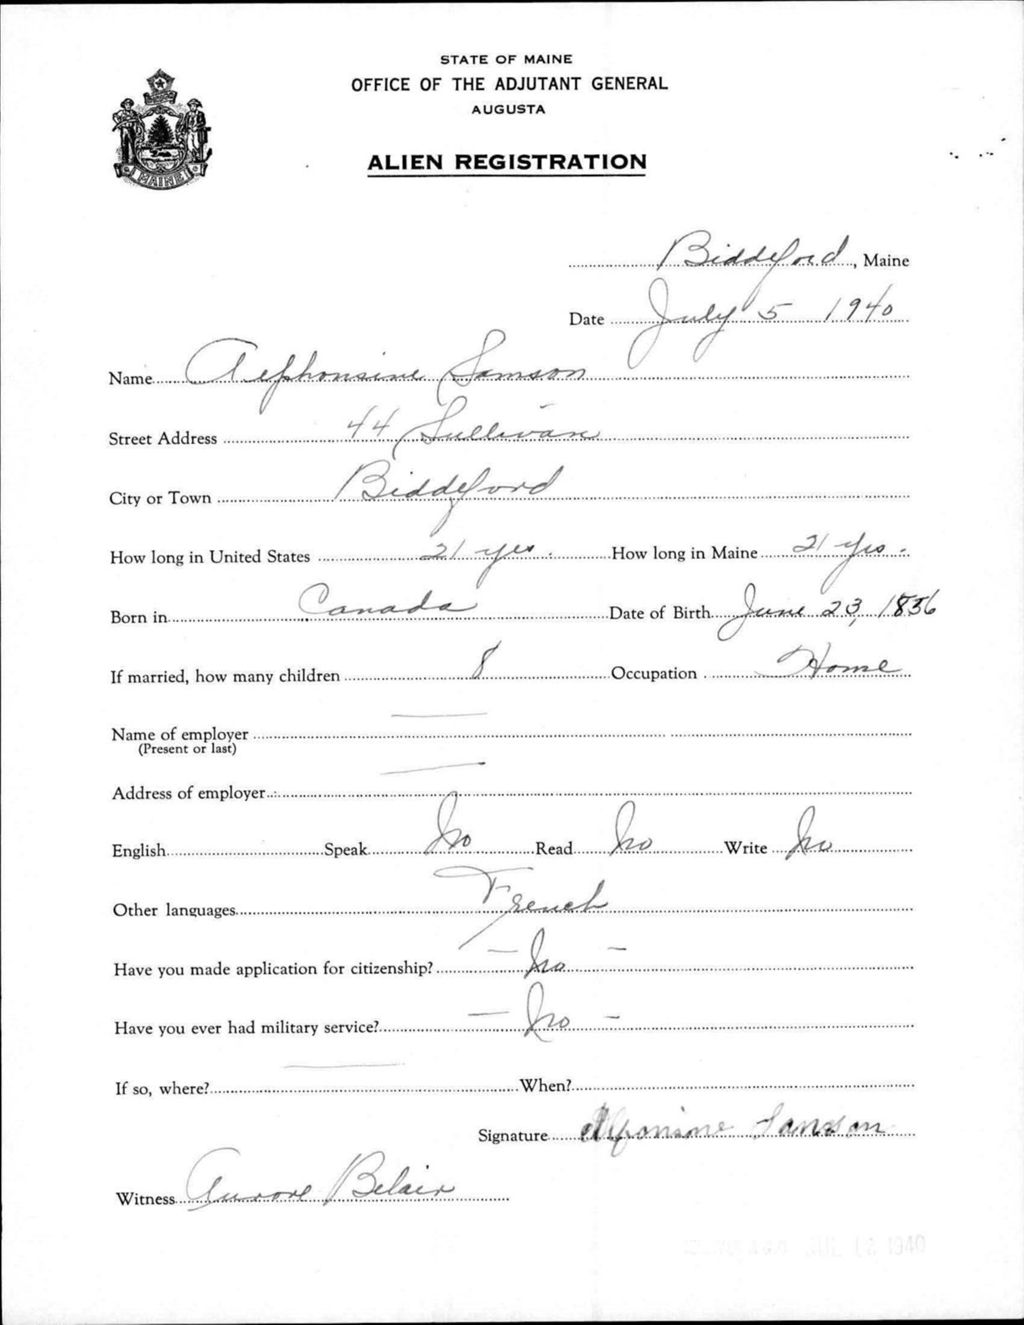 STATE OF MAINE
OFFICE OF THE ADJUTANT GENERAL
AUGUSTA
ALIEN REGISTRATION
MAINE
Biddeford, Maine
Date July 5 1940
Name Alphonsine Samson
Street Address 44 Sullivan
City or Town Biddeford
How long in United States 21 yrs. How long in Maine 21 yrs.
Born in Canada Date of Birth June 23, 1886
If married, how many children 8 Occupation Home
Name of employer —
(Present or last)
Address of employer —
English Speak No Read No Write No
Other languages French
Have you made application for citizenship? — No —
Have you ever had military service? — No —
If so, where? — When?
Signature Alfonsine Samson
Witness Aurore Belair
JUL 1940